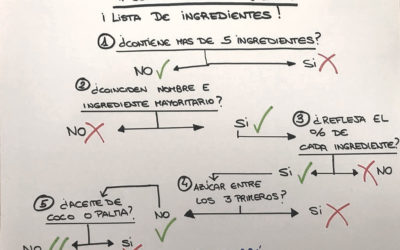 ¡ LISTA DE INGREDIENTES !
① ¿CONTIENE MAS DE 5 INGREDIENTES?
NO ✓ SI X
② ¿COINCIDEN NOMBRE E
INGREDIENTE MAYORITARIO?
NO X SI ✓
③ ¿REFLEJA EL
% DE
CADA INGREDIENTE?
SI ✓ X NO
④ AZÚCAR ENTRE
LOS 3 PRIMEROS?
NO ✓ SI X
⑤ ¿ACEITE DE
COCO O PALMA?
NO ✓✓ SI